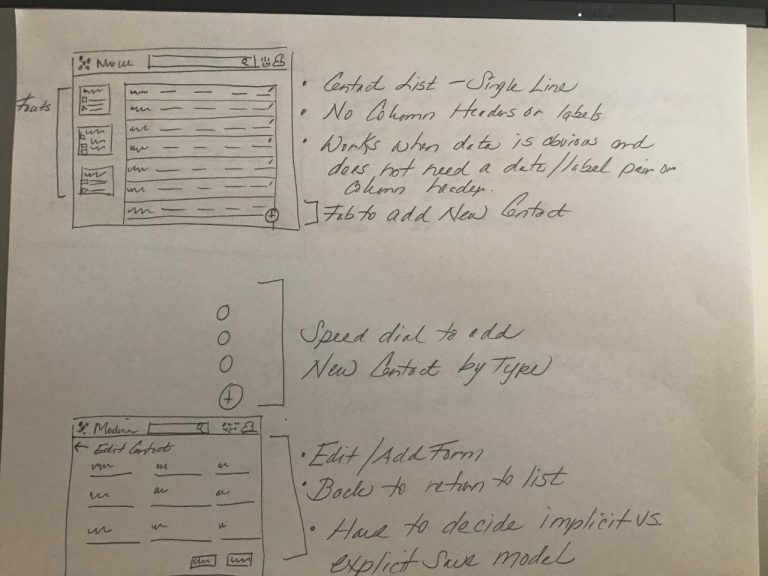 • Contact List - Single Line
• No Column Headers or labels
• Works when data is obvious and
does not need a data/label pair or
column header.
Fab to add New Contact
Speed dial to add
New Contact by Type
← Edit Contact
• Edit/Add Form
• Back to return to list
• Have to decide implicit vs.
explicit Save model